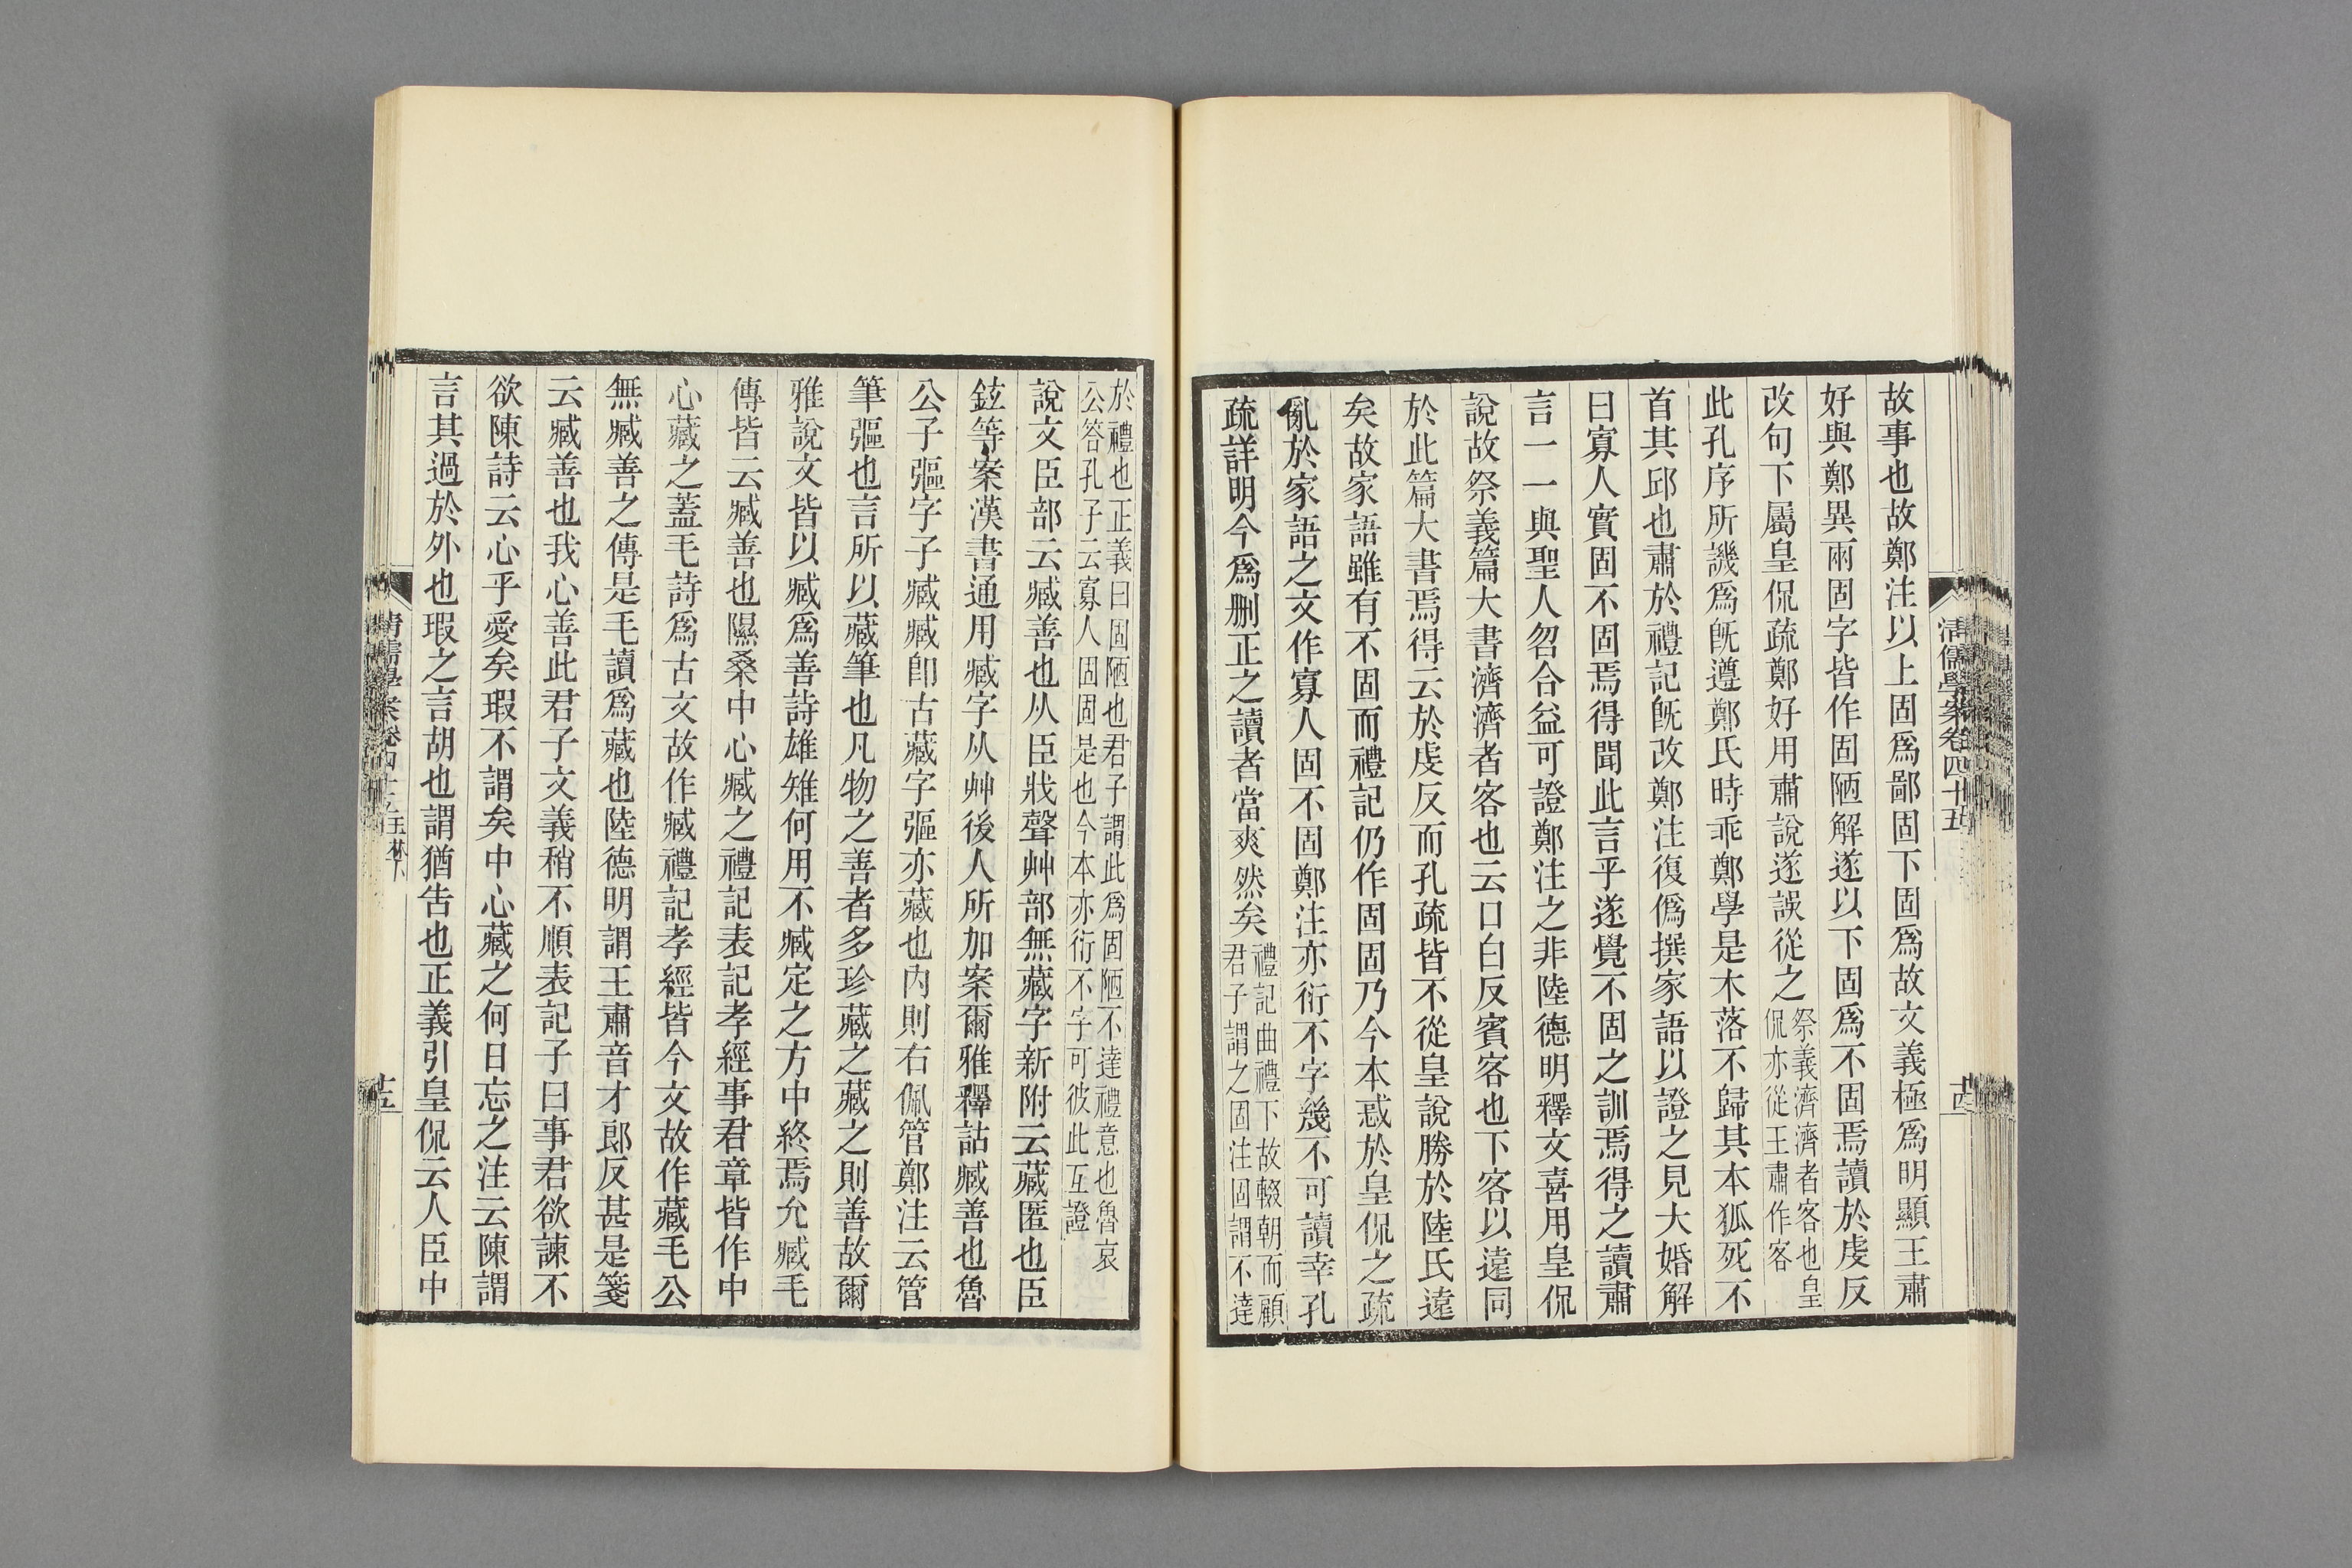 清儒學案卷四十五
十四
故事也故鄭注以上固爲鄙固下固爲故文義極爲明顯王肅
好與鄭異兩固字皆作固陋解遂以下固爲不固焉讀於虔反
改句下屬皇侃疏鄭好用肅說遂誤從之祭義濟濟者客也皇
侃亦從王肅作客
此孔序所譏爲旣遵鄭氏時乖鄭學是木落不歸其本狐死不
首其邱也肅於禮記旣改鄭注復僞撰家語以證之見大婚解
曰寡人實固不固焉得聞此言乎遂覺不固之訓焉得之讀肅
言一一與聖人忽合益可證鄭注之非陸德明釋文喜用皇侃
說故祭義篇大書濟濟者客也云口白反賓客也下客以遠同
於此篇大書焉得云於虔反而孔疏皆不從皇說勝於陸氏遠
矣故家語雖有不固而禮記仍作固固乃今本惑於皇侃之疏
亂於家語之文作寡人固不固鄭注亦衍不字幾不可讀幸孔
疏詳明今爲刪正之讀者當爽然矣禮記曲禮下故輟朝而顧
君子謂之固注固謂不達
於禮也正義曰固陋也君子謂此爲固陋不達禮意也魯哀
公答孔子云寡人固固是也今本亦衍不字可彼此互證
說文臣部云臧善也从臣戕聲艸部無藏字新附云藏匿也臣
鉉等案漢書通用臧字从艸後人所加案爾雅釋詁臧善也魯
公子彄字子臧臧卽古藏字彄亦藏也內則右佩管鄭注云管
筆彄也言所以藏筆也凡物之善者多珍藏之藏之則善故爾
雅說文皆以臧爲善詩雄雉何用不臧定之方中終焉允臧毛
傳皆云臧善也隰桑中心臧之禮記表記孝經事君章皆作中
心藏之蓋毛詩爲古文故作臧禮記孝經皆今文故作藏毛公
無臧善之傳是毛讀爲藏也陸德明謂王肅音才郎反甚是箋
云臧善也我心善此君子文義稍不順表記子曰事君欲諫不
欲陳詩云心乎愛矣瑕不謂矣中心藏之何日忘之注云陳謂
言其過於外也瑕之言胡也謂猶告也正義引皇侃云人臣中
清儒學案卷四十五玉林下
十五